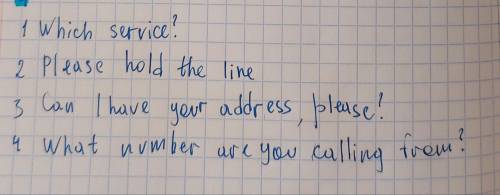 1 Which service?
2 Please hold the line
3 Can I have your address, please?
4 What number are you calling from?